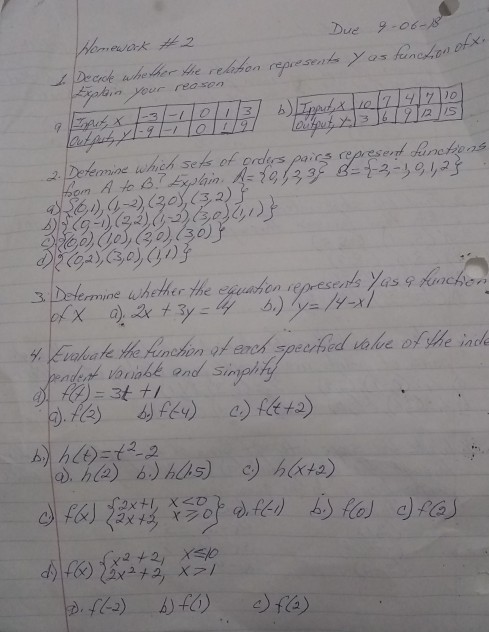 Due 9-06-18
Homework #2
1. Decide whether the relation represents y as function of x.
Explain your reason
a Input, x -3 -1 0 1 3
Output, y -9 -1 0 1 9
b) Input, x 10 7 4 7 10
Output, y 3 6 9 12 15
2. Determine which sets of orders pairs represent functions
from A to B? Explain. A= {0,1,2,3} B= {-2,-1,0,1,2}
a) {(0,1), (1,-2), (2,0), (3,2)}
b) {(0,-1), (2,2), (1,-2), (3,0), (1,1)}
c) {(0,0), (1,0), (2,0), (3,0)}
d) {(0,2), (3,0), (1,1)}
3. Determine whether the equation represents y as a function
of x a). 2x + 3y = 4 b.) y = |4-x|
4. Evaluate the function at each specified value of the inde
pendent variable and simplify
a). f(t) = 3t +1
a). f(2) b) f(-4) c.) f(t+2)
b.) h(t) = t²-2
a). h(2) b.) h(1.5) c) h(x+2)
c) f(x) {2x+1, x<0
{2x+2, x≥0} a). f(-1) b.) f(0) c) f(2)
d) f(x) {x²+2, x≤10
{2x²+2, x>1
a). f(-2) b) f(1) c) f(2)